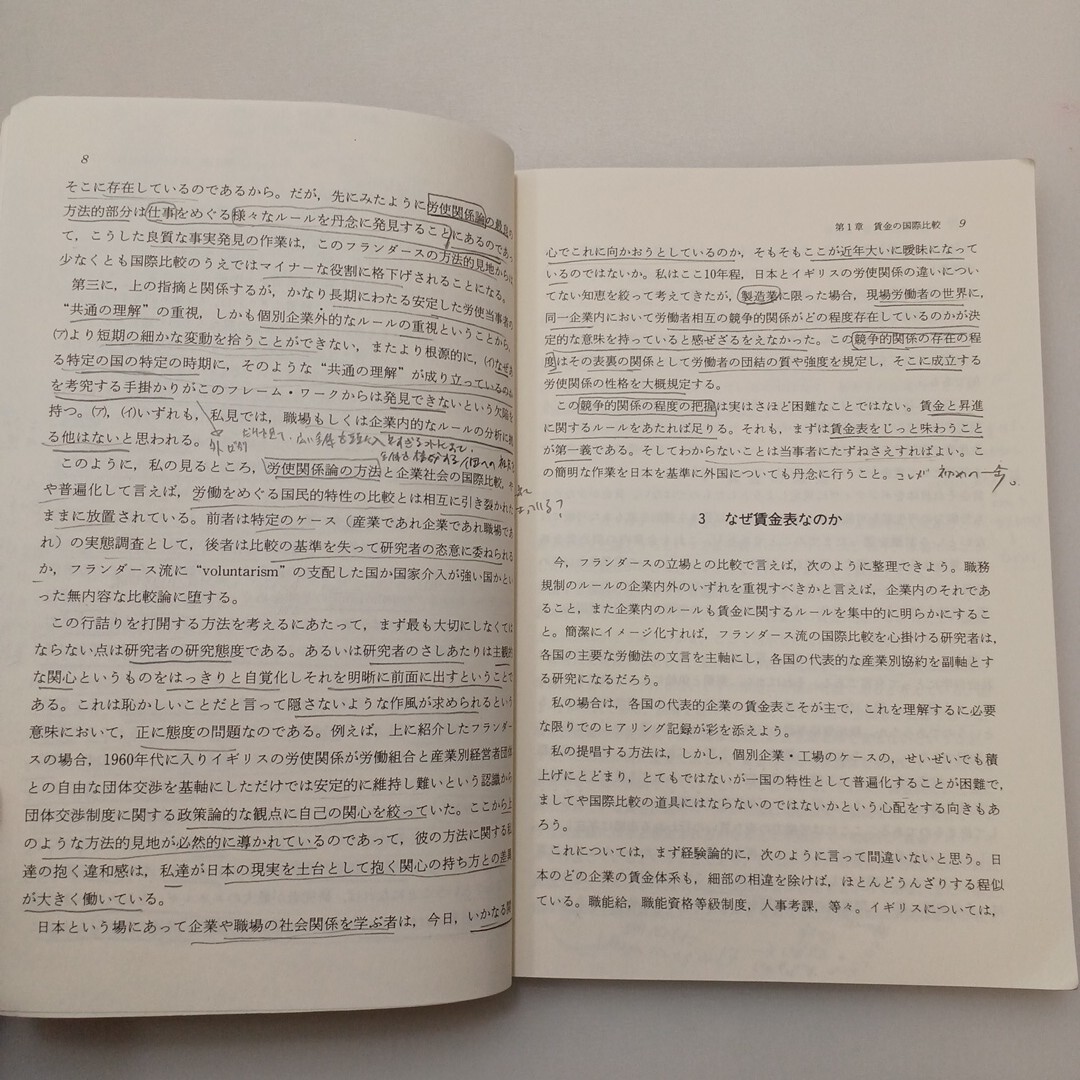 8
そこに存在しているのであるから。だが，先にみたように労使関係論の最良の
方法的部分は仕事をめぐる様々なルールを丹念に発見することにあるのであっ
て，こうした良質な事実発見の作業は，このフランダースの方法的見地からは
少なくとも国際比較のうえではマイナーな役割に格下げされることになる。
第三に，上の指摘と関係するが，かなり長期にわたる安定した労使当事者の
“共通の理解”の重視，しかも個別企業外的なルールの重視ということから，
(ア)より短期の細かな変動を拾うことができない，またより根源的に，(イ)なぜあ
る特定の国の特定の時期に，そのような“共通の理解”が成り立っているのか
を考究する手掛かりがこのフレーム・ワークからは発見できないという欠陥を
持つ。(ア)，(イ)いずれも，私見では，職場もしくは企業内的なルールの分析に
る他はないと思われる。
このように，私の見るところ，労使関係論の方法と企業社会の国際比較，や
や普遍化して言えば，労働をめぐる国民的特性の比較とは相互に引き裂かれた
ままに放置されている。前者は特定のケース（産業であれ企業であれ職場であ
れ）の実態調査として，後者は比較の基準を失って研究者の恣意に委ねられる
か，フランダース流に“voluntarism”の支配した国か国家介入が強い国かとい
った無内容な比較論に堕する。
この行詰りを打開する方法を考えるにあたって，まず最も大切にしなくては
ならない点は研究者の研究態度である。あるいは研究者のさしあたりは主観的
な関心というものをはっきりと自覚化しそれを明晰に前面に出すということで
ある。これは恥かしいことだと言って隠さないような作風が求められるという
意味において，正に態度の問題なのである。例えば，上に紹介したフランダー
スの場合，1960年代に入りイギリスの労使関係が労働組合と産業別経営者団体
との自由な団体交渉を基軸にしただけでは安定的に維持し難いという認識から
団体交渉制度に関する政策論的な観点に自己の関心を絞っていた。ここから上
のような方法的見地が必然的に導かれているのであって，彼の方法に関する私
達の抱く違和感は，私達が日本の現実を土台として抱く関心の持ち方との差異
が大きく働いている。
日本という場にあって企業や職場の社会関係を学ぶ者は，今日，いかなる関
第1章 賃金の国際比較 9
心でこれに向かおうとしているのか，そもそもここが近年大いに曖昧になって
いるのではないか。私はここ10年程，日本とイギリスの労使関係の違いについ
てない知恵を絞って考えてきたが，製造業に限った場合，現場労働者の世界に，
同一企業内において労働者相互の競争的関係がどの程度存在しているのかが決
定的な意味を持っていると感ぜざるをえなかった。この競争的関係の存在の程
度はその表裏の関係として労働者の団結の質や強度を規定し，そこに成立する
労使関係の性格を大概規定する。
この競争的関係の程度の把握は実はさほど困難なことではない。賃金と昇進
に関するルールをあたれば足りる。それも，まずは賃金表をじっと味わうこと
が第一義である。そしてわからないことは当事者にたずねさえすればよい。こ
の簡明な作業を日本を基準に外国についても丹念に行うこと。
3 なぜ賃金表なのか
今，フランダースの立場との比較で言えば，次のように整理できよう。職務
規制のルールの企業内外のいずれを重視すべきかと言えば，企業内のそれであ
ること，また企業内のルールも賃金に関するルールを集中的に明らかにするこ
と。簡潔にイメージ化すれば，フランダース流の国際比較を心掛ける研究者は，
各国の主要な労働法の文言を主軸にし，各国の代表的な産業別協約を副軸とす
る研究になるだろう。
私の場合は，各国の代表的企業の賃金表こそが主で，これを理解するに必要
な限りでのヒアリング記録が彩を添えよう。
私の提唱する方法は，しかし，個別企業・工場のケースの，せいぜいでも積
上げにとどまり，とてもではないが一国の特性として普遍化することが困難で，
ましてや国際比較の道具にはならないのではないかという心配をする向きもあ
ろう。
これについては，まず経験論的に，次のように言って間違いないと思う。日
本のどの企業の賃金体系も，細部の相違を除けば，ほとんどうんざりする程似
ている。職能給，職能資格等級制度，人事考課，等々。イギリスについては，